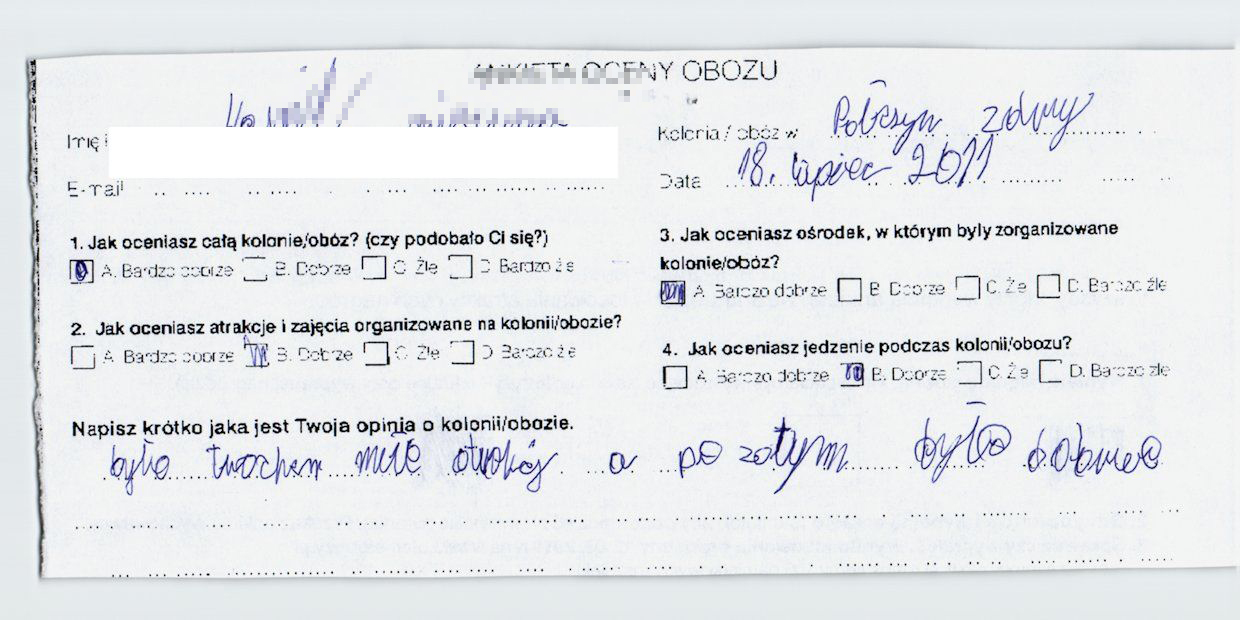 ANKIETA OCENY OBOZU
Imię i
E-mail
Kolonia / obóz w Połczyn zdruy
Data 18. lipiec 2011
1. Jak oceniasz całą kolonie/obóz? (czy podobało Ci się?)
A. Bardzo dobrze B. Dobrze C. Źle D. Bardzo źle
2. Jak oceniasz atrakcje i zajęcia organizowane na kolonii/obozie?
A. Bardzo dobrze B. Dobrze C. Źle D. Bardzo źle
3. Jak oceniasz ośrodek, w którym były zorganizowane
kolonie/obóz?
A. Bardzo dobrze B. Dobrze C. Źle D. Bardzo źle
4. Jak oceniasz jedzenie podczas kolonii/obozu?
A. Bardzo dobrze B. Dobrze C. Źle D. Bardzo źle
Napisz krótko jaka jest Twoja opinia o kolonii/obozie.
było trochem a po zatym było